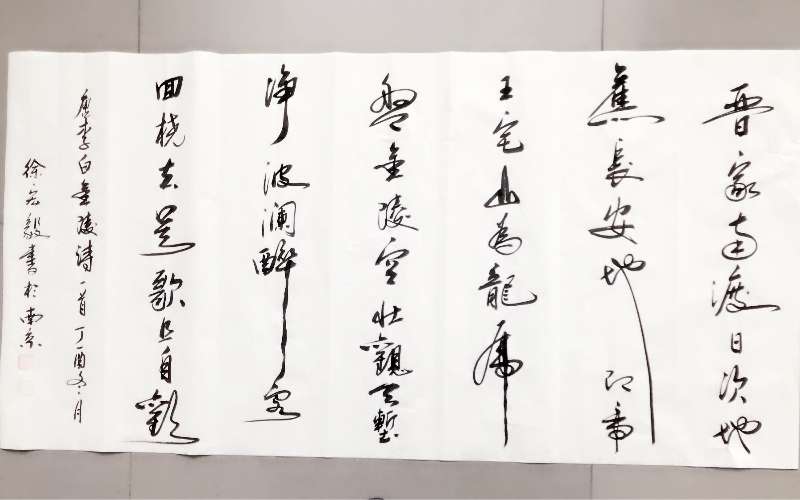 晉家南渡日此地
舊長安地即帝
王宅山為龍虎
盤金陵空壯觀天塹
淨波瀾醉客
回橈去吳歌且自歡
唐李白金陵詩一首丁酉冬月
徐宏毅書於南京